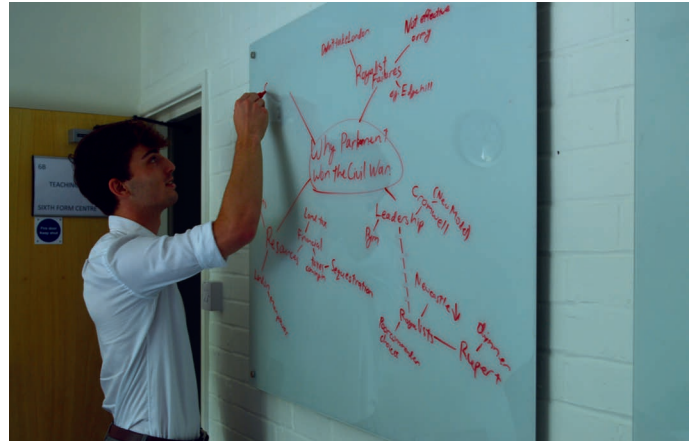 GB
TEACHING
SIXTH FORM CENTRE
Didn't take London
Not effective
army
Royalist
Failures
eg. Edgehill
Why Parliment
Won the Civil War
Leadership
Cromwell
(New Model)
Pym
Resources
Financial
Sequestration
Newcastle
Royalists
Rupert